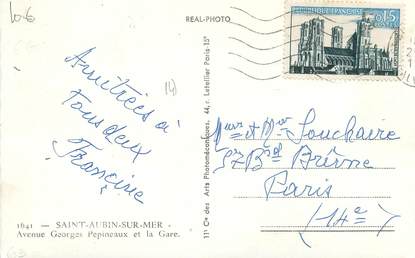 REAL-PHOTO
RÉPUBLIQUE FRANÇAISE
0,15
POSTES
Amitiées à
Tous deux
Francine
(14)
1641 — SAINT-AUBIN-SUR-MER
Avenue Georges Pepineaux et la Gare.
11 Cie des Arts Photomécaniques, 44, r. Letellier Paris-15e
et
Souchaire
57 Bd Brune
Paris
(14e)